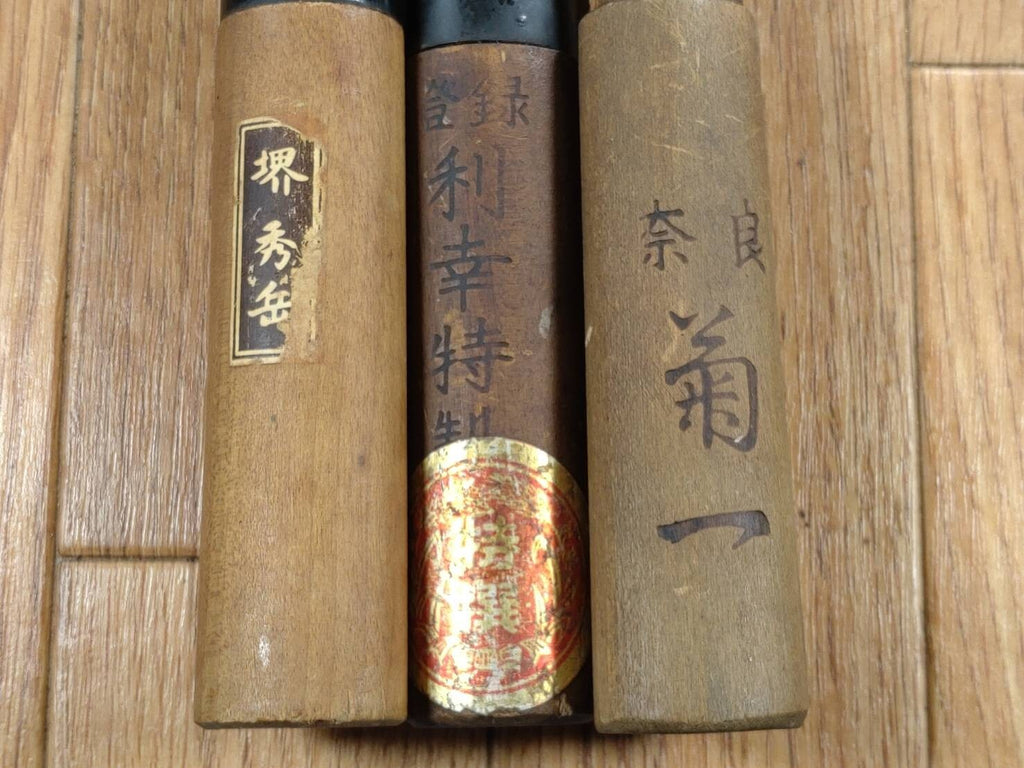 堺秀岳
登録
利幸特製
特製
奈良
菊一